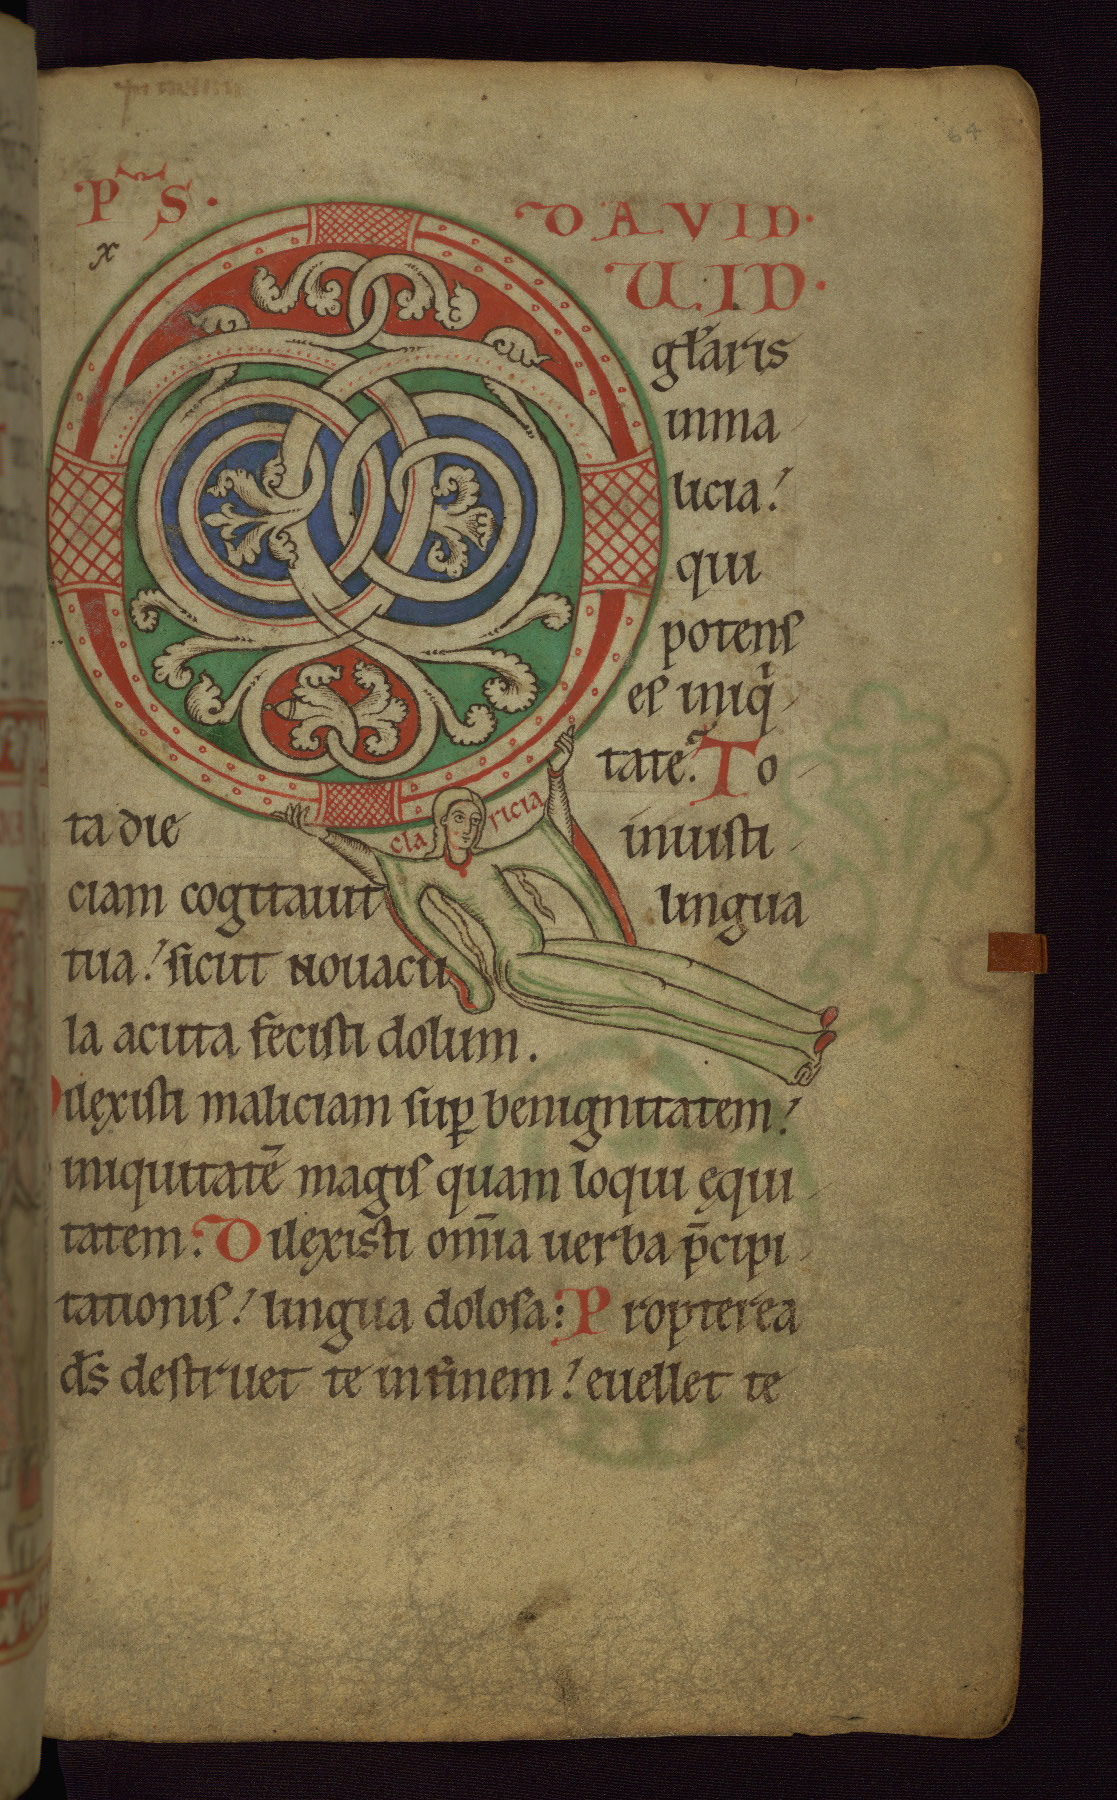 64
PS. DAVID.
QUID.
gl̄aris
inma
licia!
qui
potens
es iniq̇
tate? To
ta die iniusti
ciam cogitauit lingua
tua! sicut nouacu
la acuta fecisti dolum.
claricia
Dilexisti maliciam sup̱ benignitatem!
iniquitatē magis quam loqui ęqui
tatem. Dilexisti om̄ia uerba p̄cipi
tationis! lingua dolosa: Propterea
d̄s destruet te infinem! euellet te